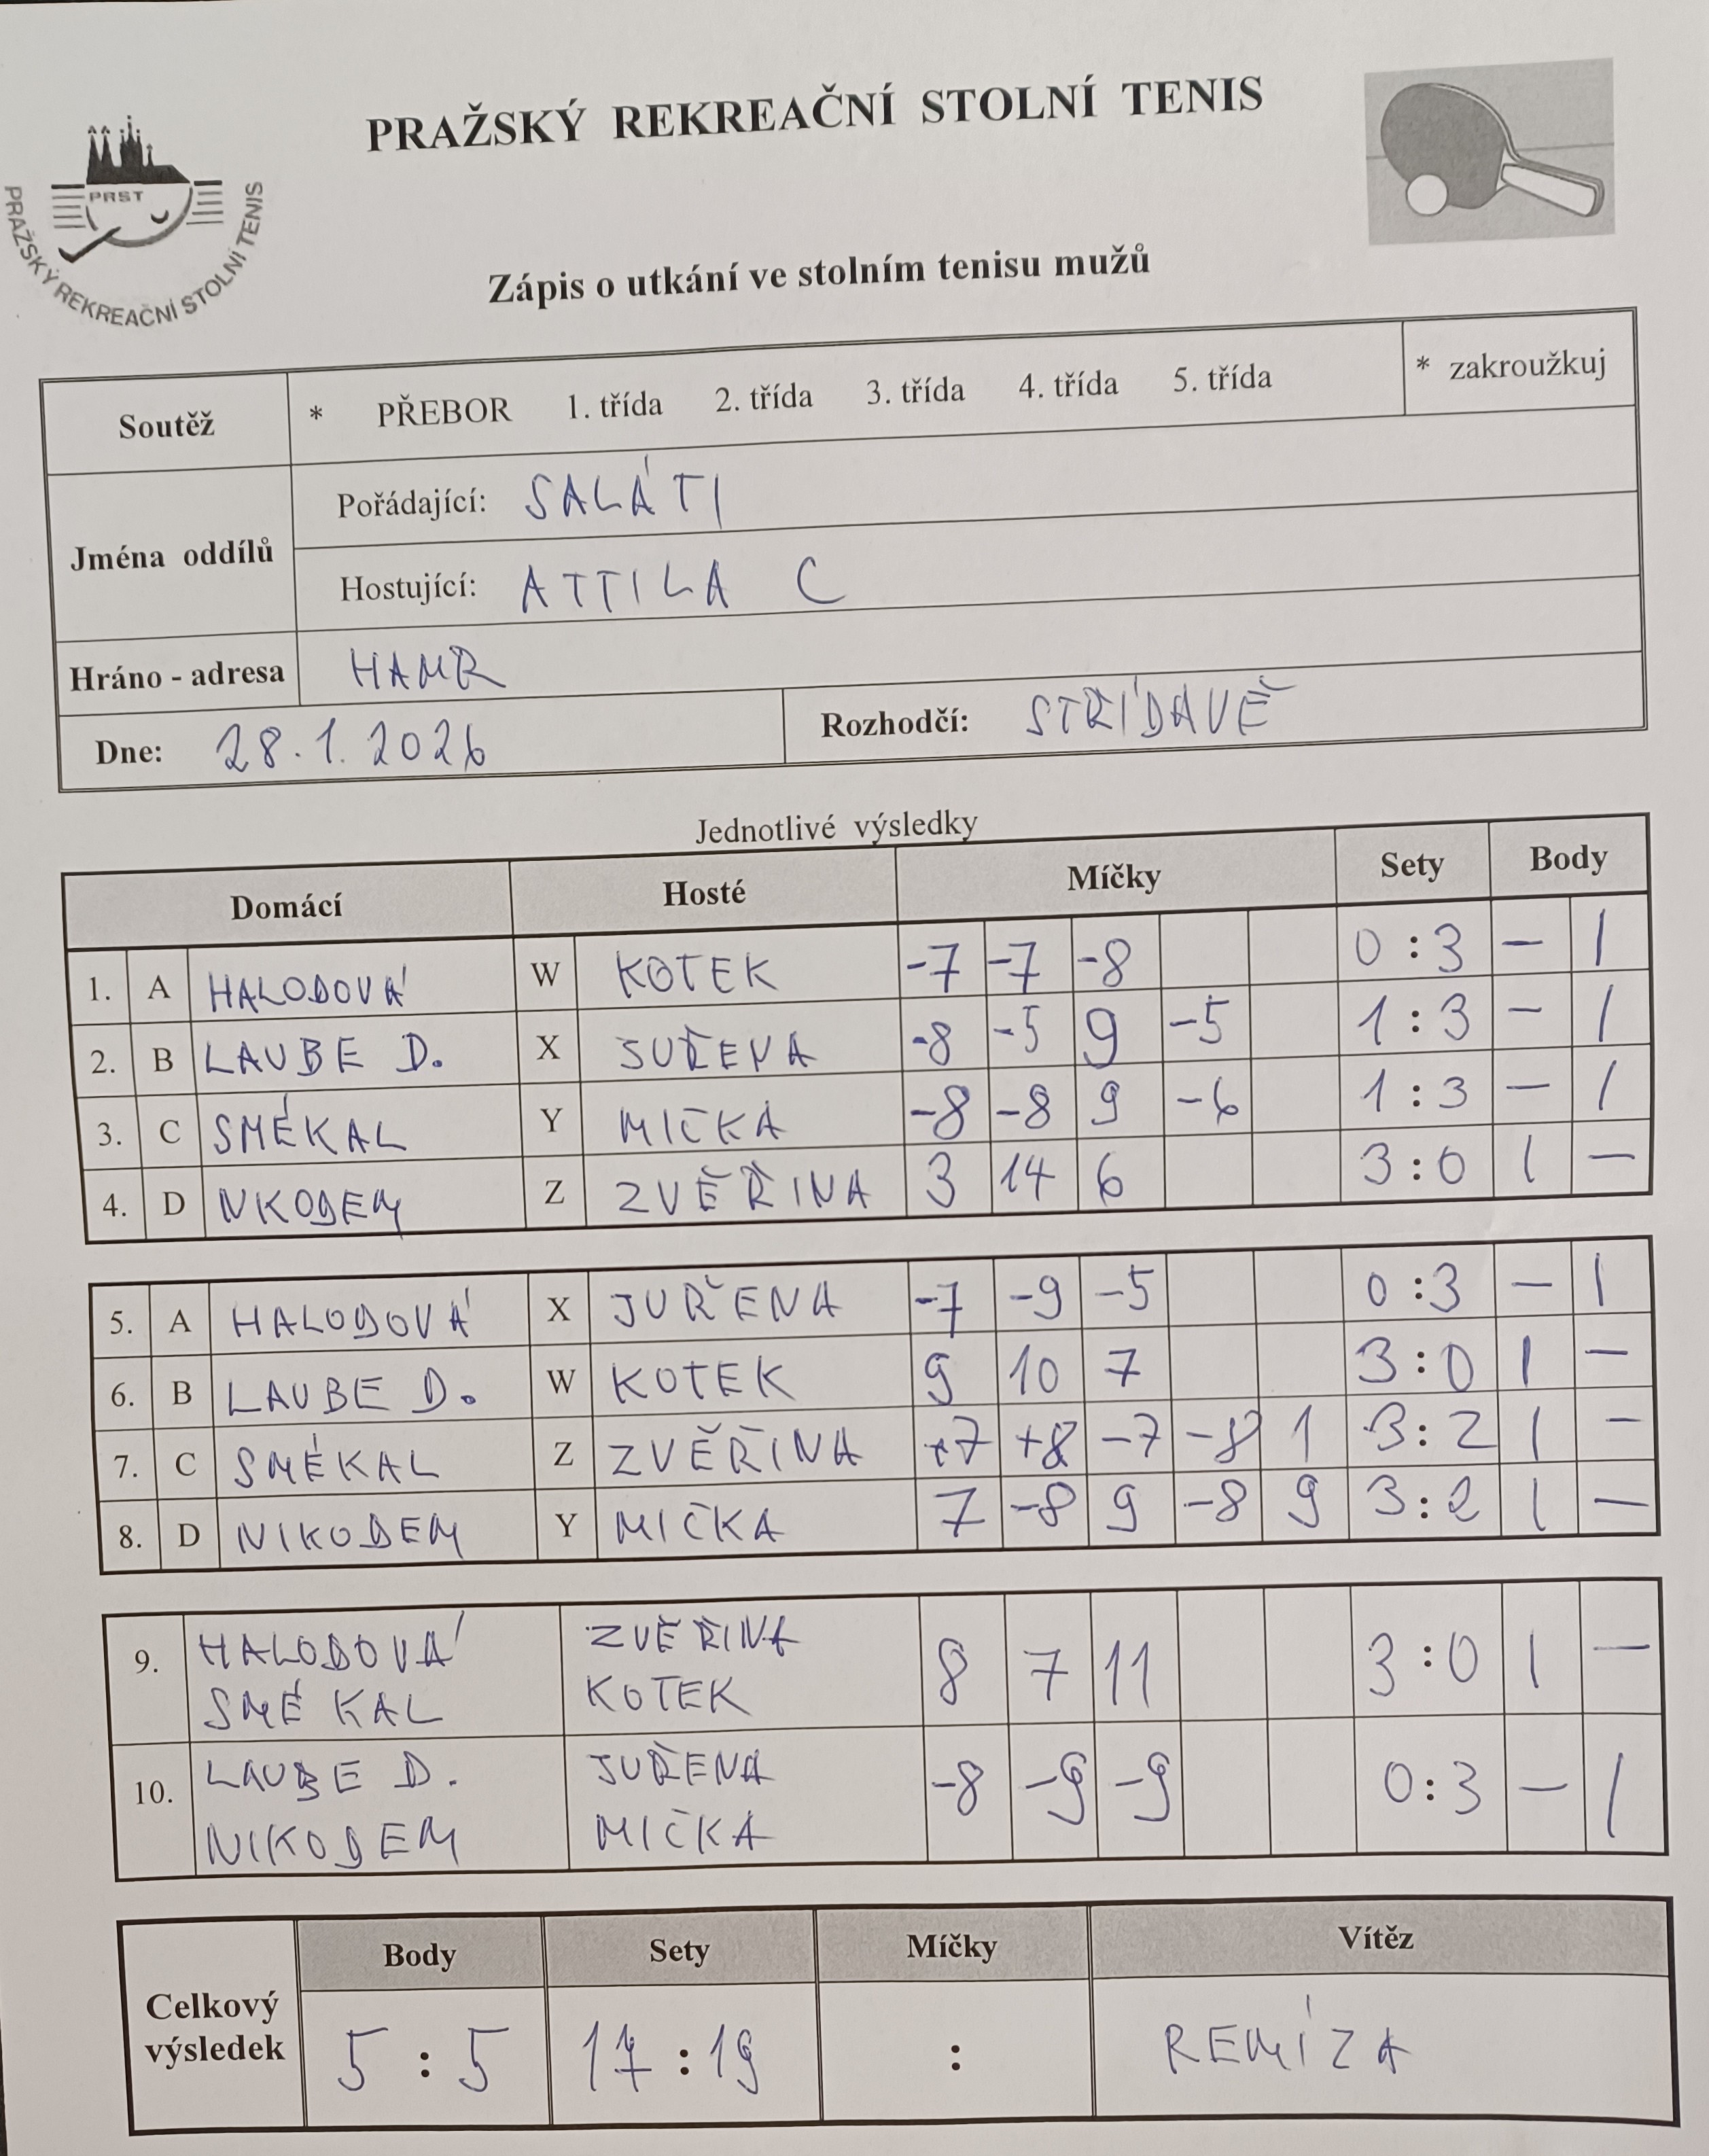 PRAŽSKÝ REKREAČNÍ STOLNÍ TENIS
PRST
PRAŽSKÝ REKREAČNÍ STOLNÍ TENIS
Zápis o utkání ve stolním tenisu mužů
Soutěž * PŘEBOR 1. třída 2. třída 3. třída 4. třída 5. třída * zakroužkuj
Jména oddílů
Pořádající: SALÁTI
Hostující: ATTILA C
Hráno - adresa HAMR
Dne: 28.1.2026 Rozhodčí: STŘÍDAVĚ
Jednotlivé výsledky
Domácí Hosté Míčky Sety Body
1. A HALODOVÁ W KOTEK -7 -7 -8 0 : 3 — 1
2. B LAUBE D. X JUŘENA -8 -5 9 -5 1 : 3 — 1
3. C SMÉKAL Y MIČKA -8 -8 9 -6 1 : 3 — 1
4. D NKODEM Z ZVĚŘINA 3 14 6 3 : 0 1 —
5. A HALODOVÁ X JUŘENA -7 -9 -5 0 : 3 — 1
6. B LAUBE D. W KOTEK 9 10 7 3 : 0 1 —
7. C SMÉKAL Z ZVĚŘINA +7 +8 -7 -8 1 3 : 2 1 —
8. D NIKODEM Y MIČKA 7 -8 9 -8 9 3 : 2 1 —
9. HALODOVÁ ZVĚŘINA 8 7 11 3 : 0 1 —
SMÉKAL KOTEK
10. LAUBE D. JUŘENA -8 -9 -9 0 : 3 — 1
NIKODEM MIČKA
Celkový výsledek Body Sety Míčky Vítěz
5 : 5 17 : 19 : REMÍZA